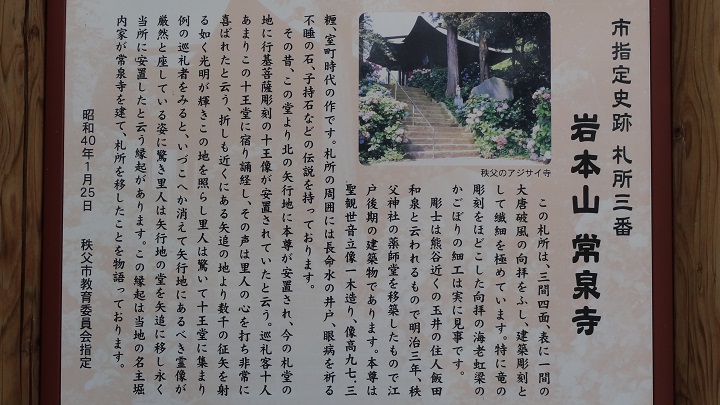 市指定史跡 札所三番
岩本山 常泉寺
この札所は、三間四面、表に一間の
大唐破風の向拝をふし、建築彫刻と
して繊細を極めています。特に竜の
彫刻をほどこした向拝の海老虹梁の
かごぼりの細工は実に見事です。
彫士は熊谷近くの玉井の住人飯田
和泉と云われるもので明治三年、秩
父神社の薬師堂を移築したもので江
戸後期の建築物であります。本尊は
聖観世音立像一木造り、像高九七・三
糎、室町時代の作です。札所の周囲には長命水の井戸、眼病を祈る
不睡の石、子持石などの伝説を持っております。
その昔、この堂より北の矢行地に本尊が安置され、今の札堂の
地に行基菩薩彫刻の十王像が安置されていたと云う。巡礼客十人
あまりこの十王堂に宿り誦経し、その声は里人の心を打ち非常に
喜ばれたと云う、折しも近くにある矢追の地より数千の征矢を射
る如く光明が輝きこの地を照らし里人は驚いて十王堂に集まり
例の巡礼者をみると、いづこへか消えて矢行地にあるべき霊像が
厳然と座している姿に驚き里人は矢行地の堂を矢追に移し永く
当所に安置したと云う縁起があります。この縁起は当地の名主堀
内家が常泉寺を建て、札所を移したことを物語っております。
昭和40年1月25日 秩父市教育委員会指定
秩父のアジサイ寺